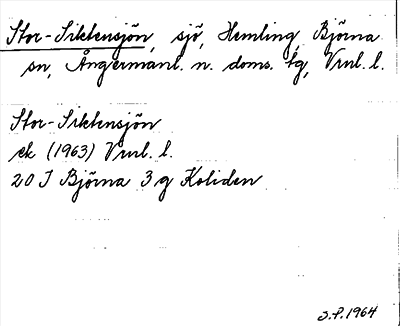 Stor-Siktensjön, sjö, Hemling, Björna
sn, Ångermanl. n. doms. tg, Vnrl. l.
Stor-Siktensjön
ek (1963) Vnrl. l.
20 I Björna 3 g Koliden
S.P. 1964